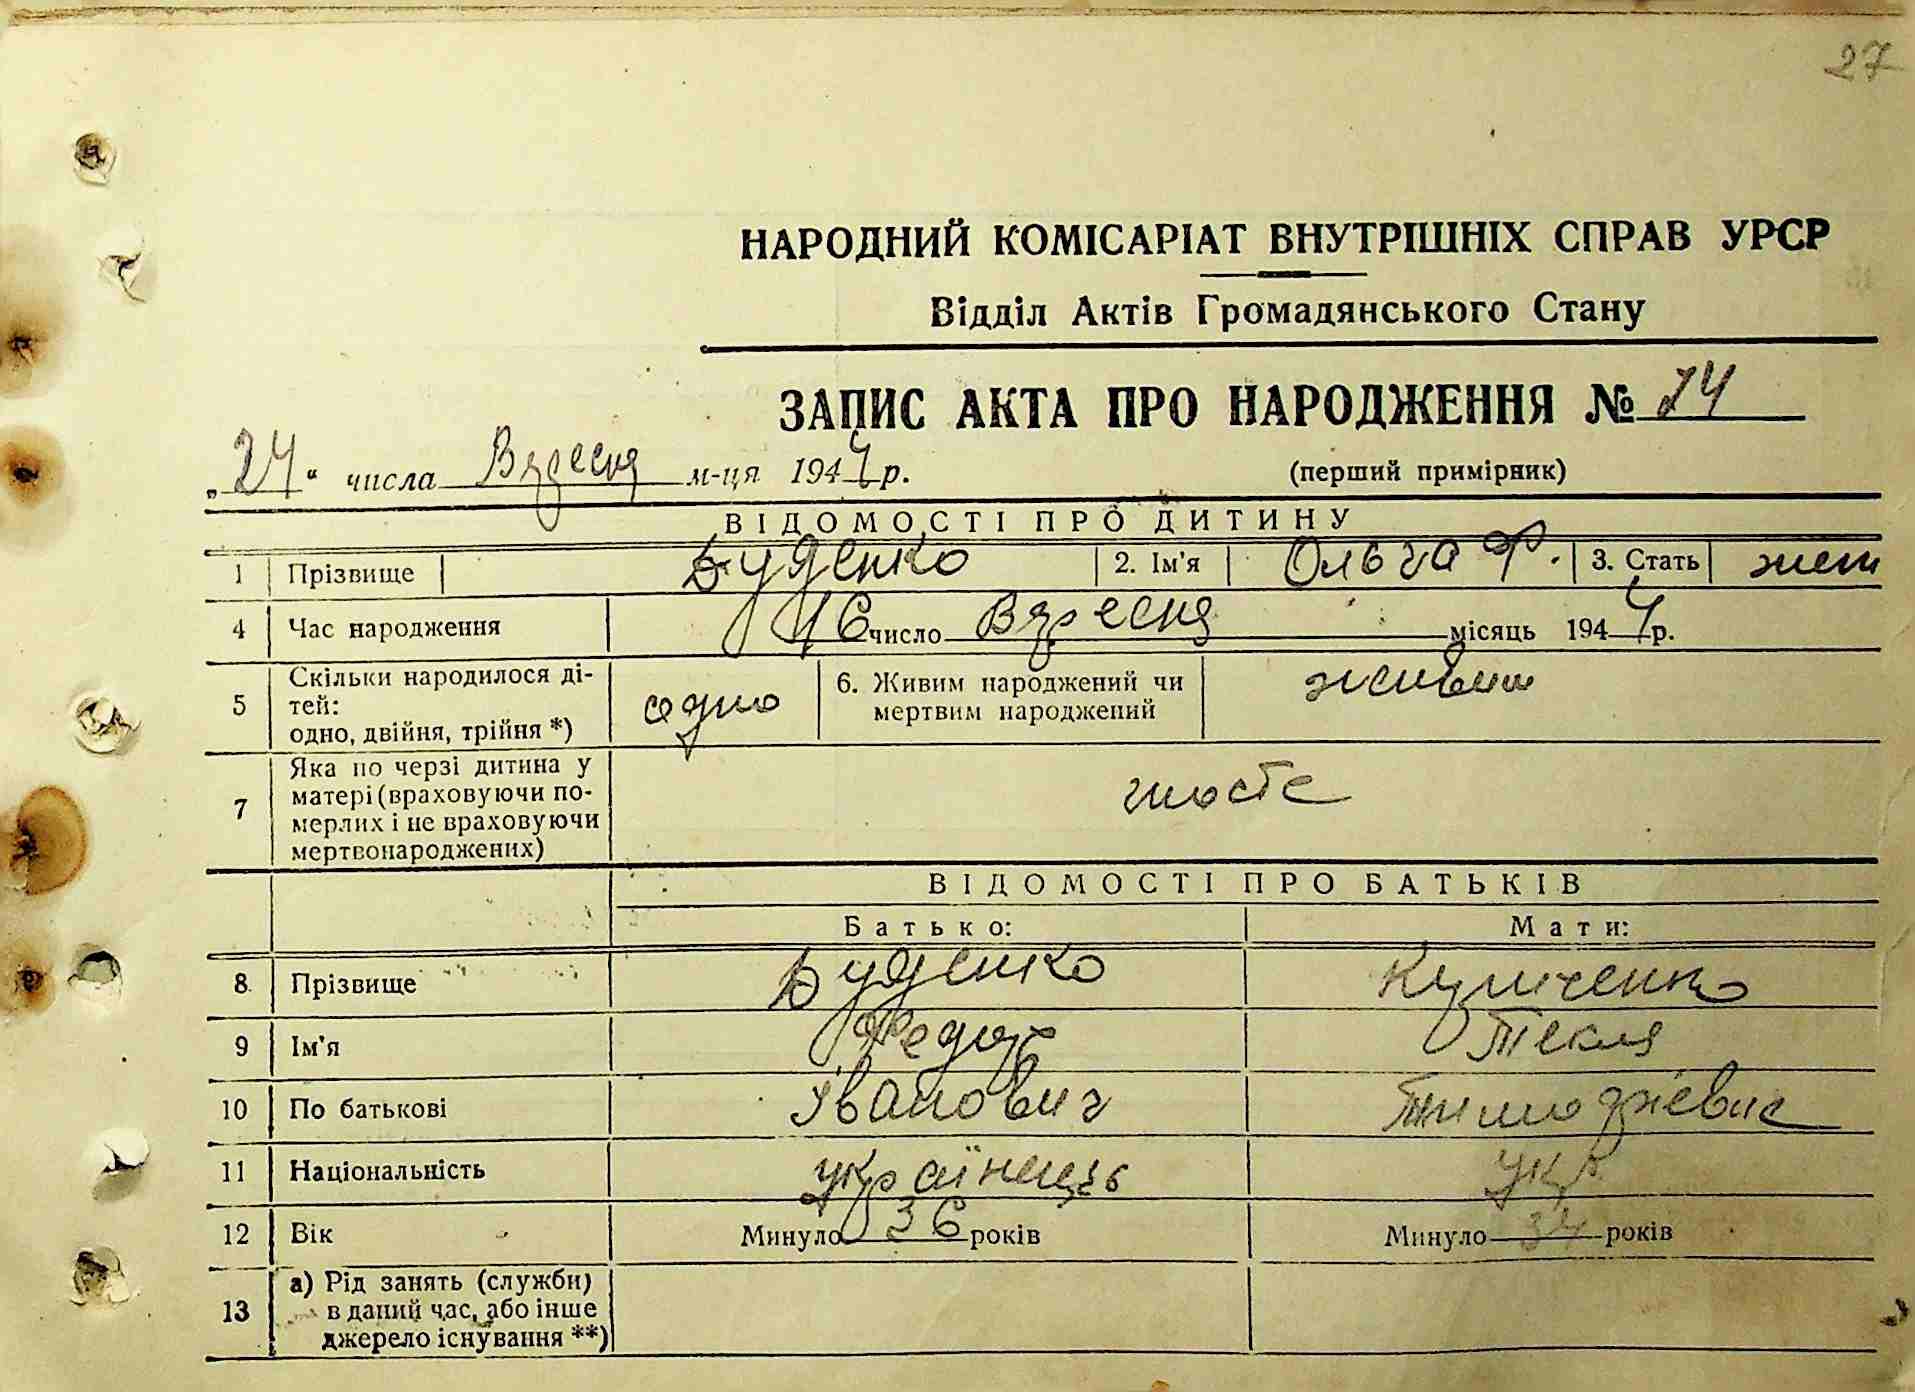 27
НАРОДНИЙ КОМІСАРІАТ ВНУТРІШНІХ СПРАВ УРСР
Відділ Актів Громадянського Стану
ЗАПИС АКТА ПРО НАРОДЖЕННЯ № 24
„24“ числа Вересня м-ця 1944 р.
(перший примірник)
ВІДОМОСТІ ПРО ДИТИНУ
1 Прізвище Буденко 2. Ім'я Ольга Ф. 3. Стать жен
4 Час народження 16 число Вересня місяць 1944 р.
5 Скільки народилося ді-
тей:
одно, двійня, трійня *) одно
6. Живим народжений чи
мертвим народжений живим
7 Яка по черзі дитина у
матері (враховуючи по-
мерлих і не враховуючи
мертвонароджених) шосте
ВІДОМОСТІ ПРО БАТЬКІВ
Батько: Мати:
8 Прізвище Буденко
9 Ім'я Федор Текля
10 По батькові Іванович
11 Національність українець укр
12 Вік Минуло 36 років Минуло 34 років
13 а) Рід занять (служби)
в даний час, або інше
джерело існування **)